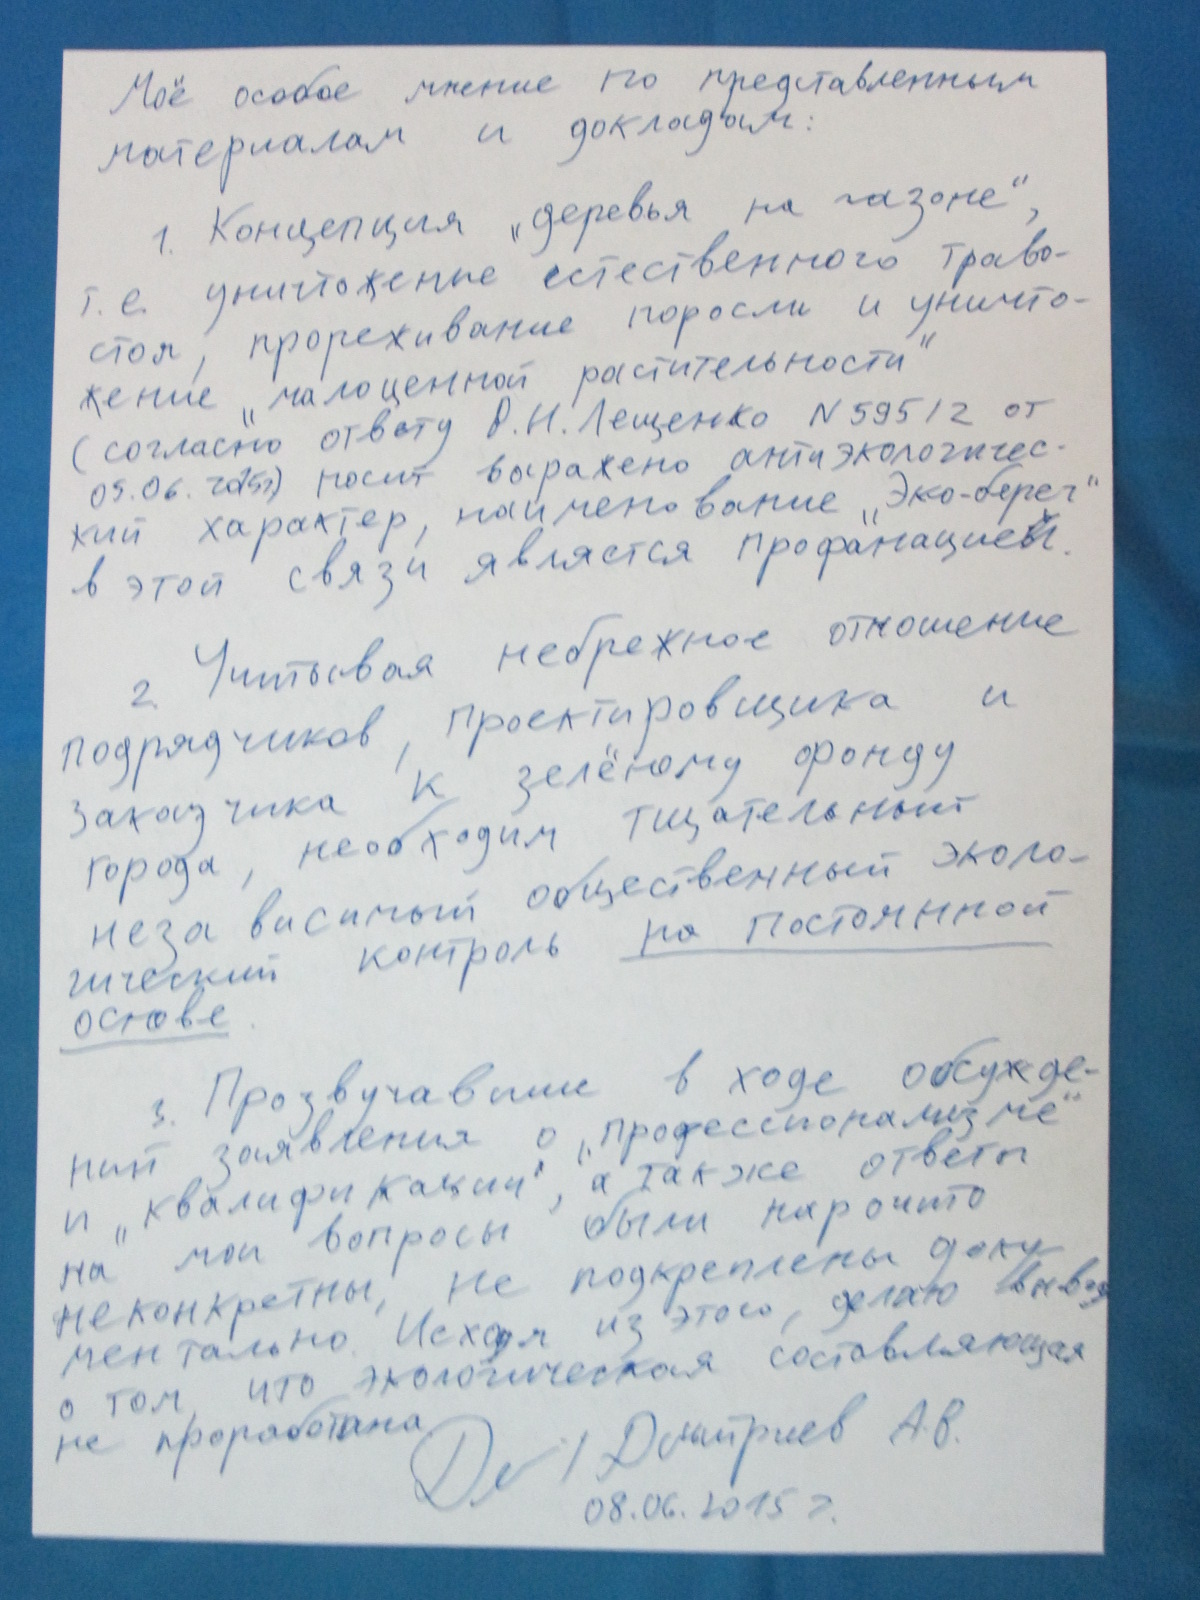 Моё особое мнение по представленным
материалам и докладам:
1. Концепция „деревья на газоне",
т.е. уничтожение естественного траво-
стоя, прореживание поросли и уничто-
жение „малоценной растительности"
(согласно ответу Р.Н. Лещенко N 595/2 от
05.06.2015) носит выражено антиэкологичес-
кий характер, наименование „Эко-берег"
в этой связи является профанацией.
2. Учитывая небрежное отношение
подрядчиков, проектировщика и
заказчика к зелёному фонду
города, необходим тщательный
независимый общественный эколо-
гический контроль на постоянной
основе.
3. Прозвучавшие в ходе обсужде-
ний заявления о „профессионализме"
и „квалификации", а также ответы
на мои вопросы были нарочито
неконкретны, не подкреплены доку-
ментально. Исходя из этого, делаю вывод
о том, что экологическая составляющая
не проработана
/ Дмитриев А.В.
08.06.2015 г.